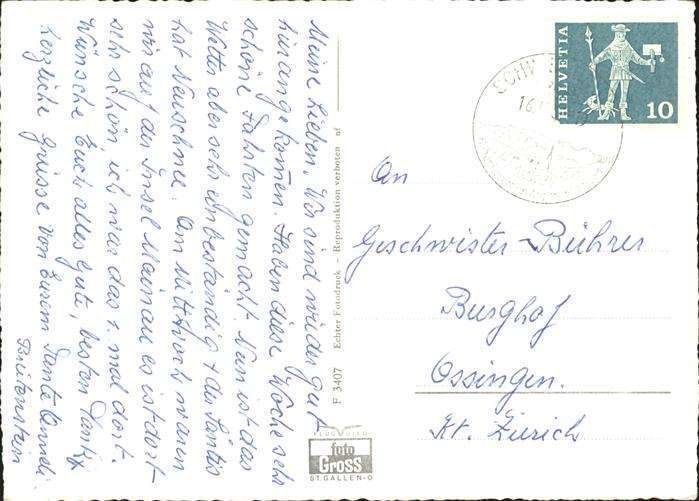 Meine Lieben. Wir sind wieder gut
hier angekommen. Haben diese Woche sehr
schöne Fahrten gemacht. Nun ist das
Wetter aber sehr unbeständig & der Säntis
hat Neuschnee. Am Mittwoch waren
wir auf der Insel Mainau es ist dort
sehr schön ich war das 1. mal dort.
Wünsche Euch alles Gute, besten Dank &
herzliche Grüsse von Eurem Tante Anneli.
Breitenstein
F 3407 Echter Fotodruck - Reproduktion verboten af
foto
Gross
ST. GALLEN-O
HELVETIA
10
SCHW
16.
An
Geschwister Bührer
Burghof
Ossingen.
Kt. Zürich